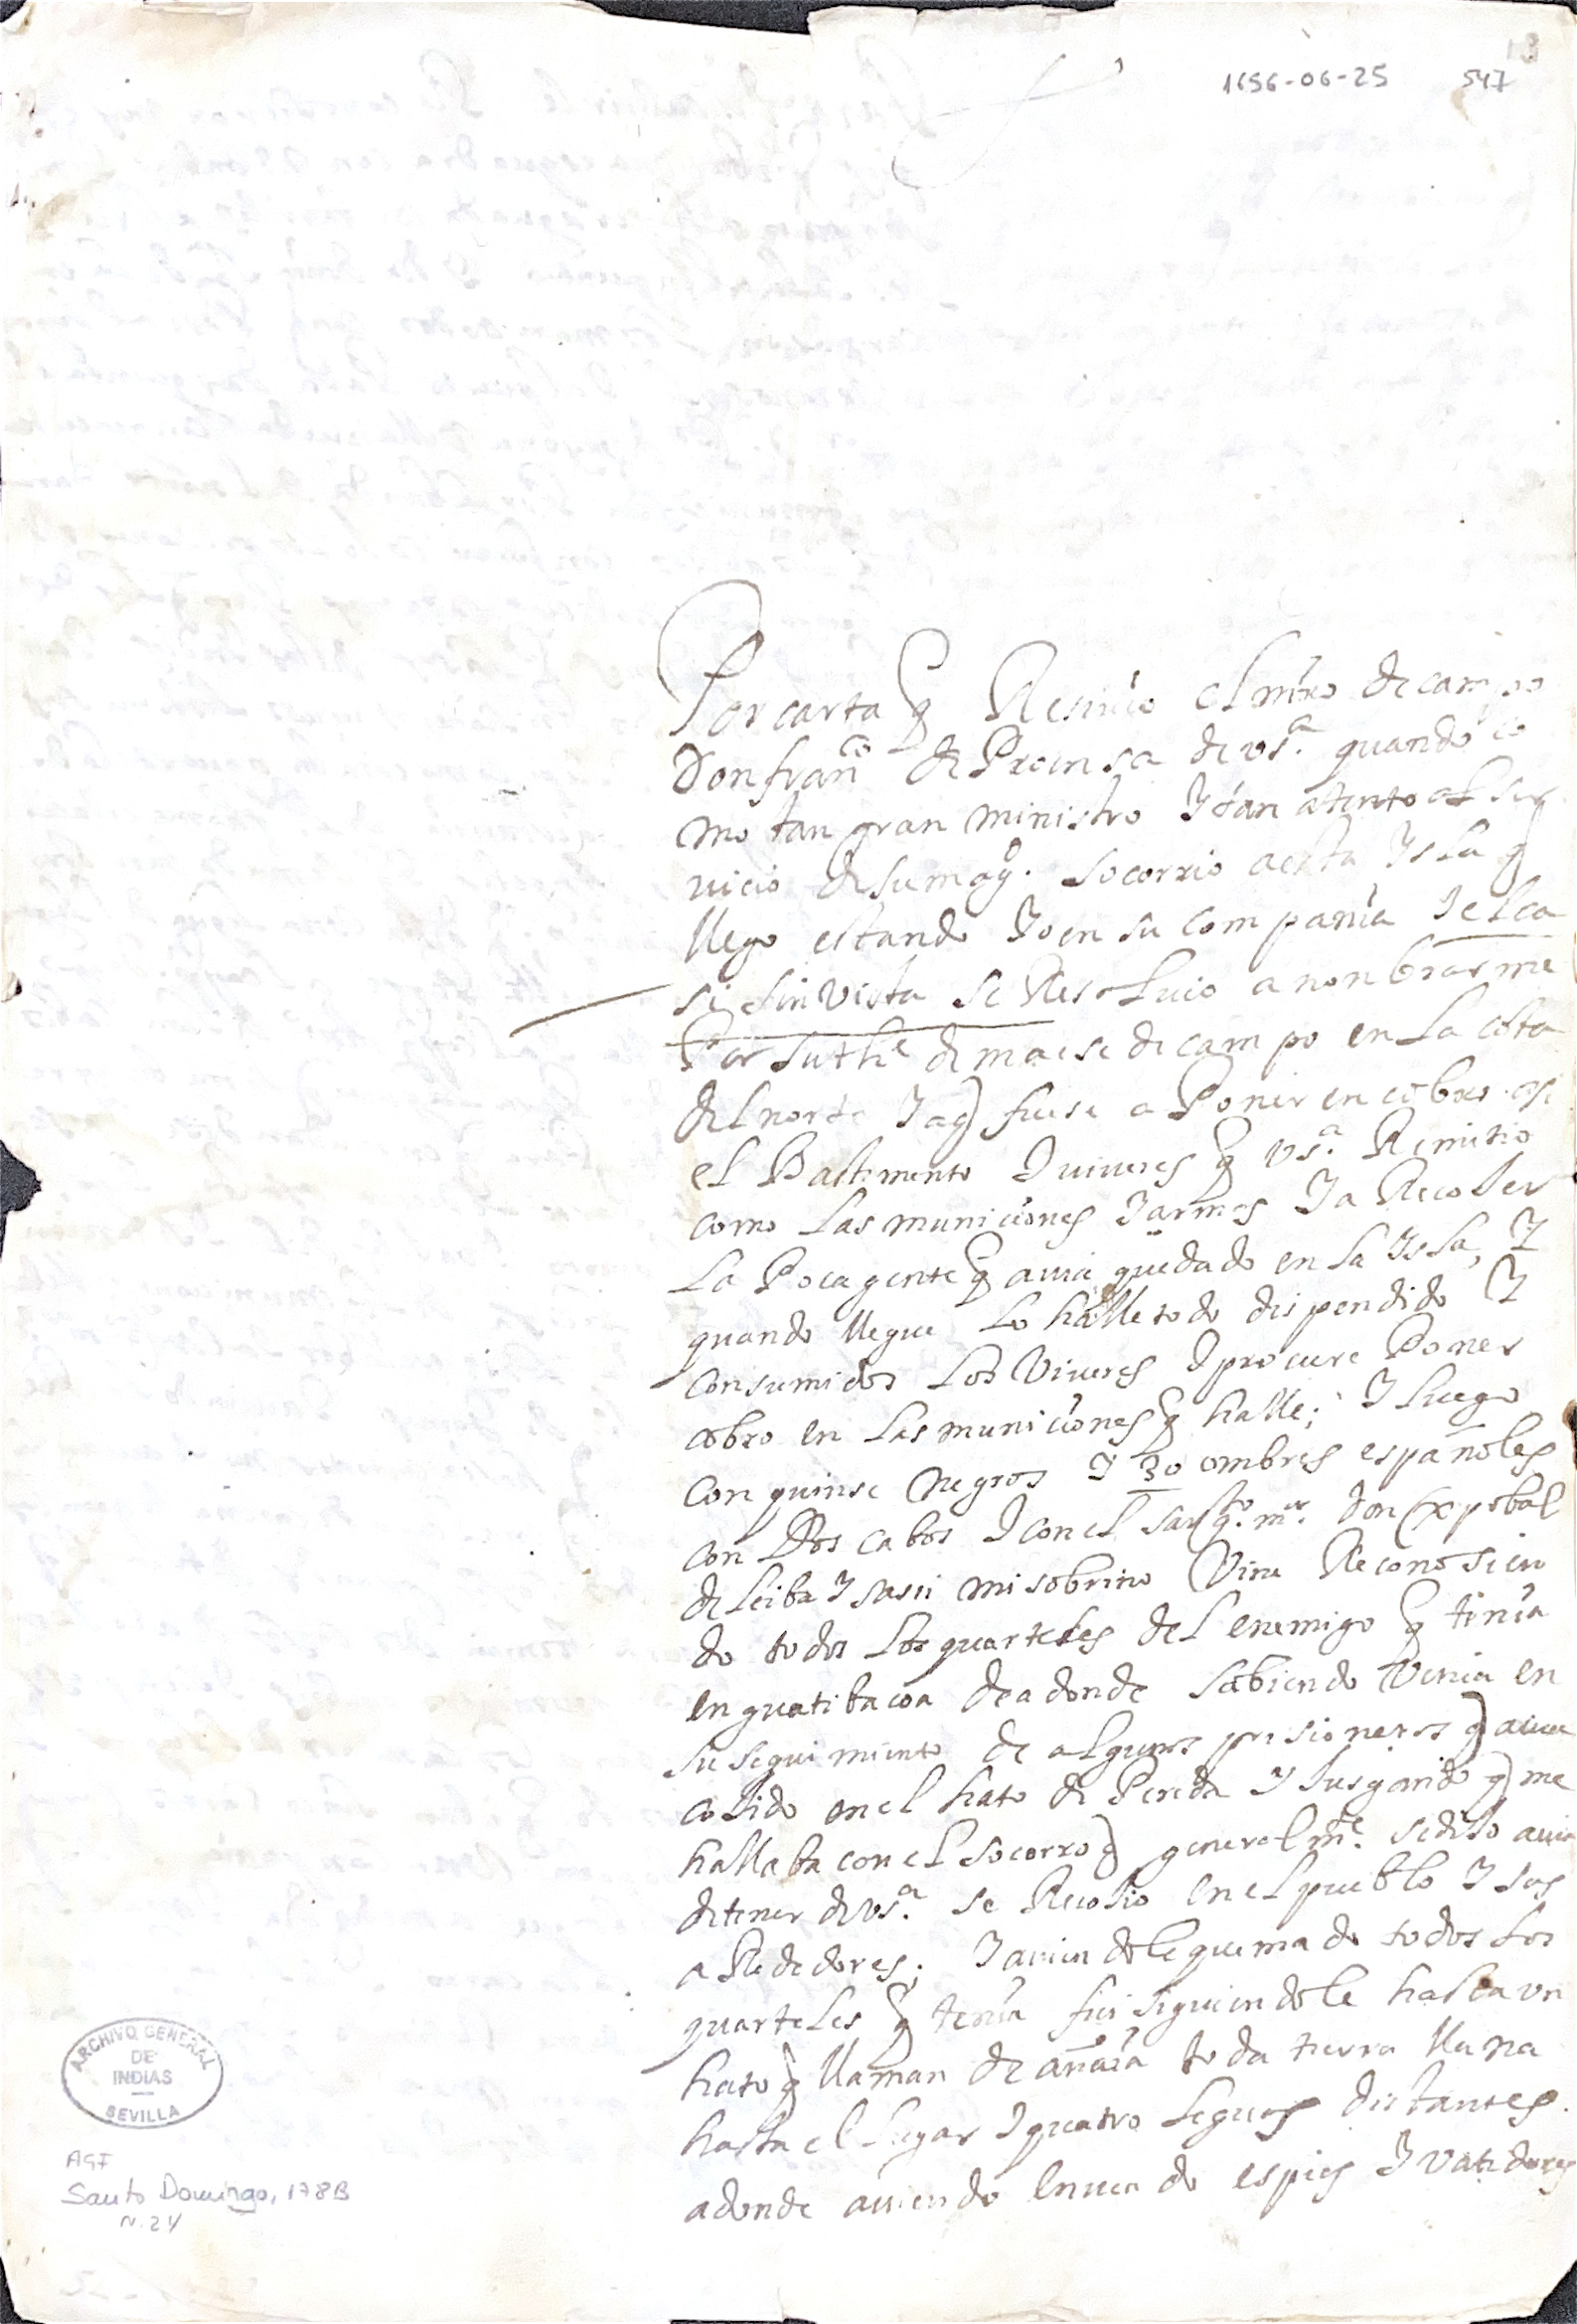 1656-06-25 547
Por carta q Resiuio el mro de campo
Don franco de Proensa de vsa. quando co
mo tan gran ministro Y tan atento al ser
uicio de su magd. socorrio a esta Ysla q
llego estando Yo en su compania Y el ca
si sin vista se Resoluio a nonbrarme
Por su the de maese de campo en la costa
del norte Y a q fuese a Poner en cobro asi
el Bastimento Y viueres q vsa. Remitio
como las municiones Y armas Y a RecoJer
la Poca gente q auia quedado en la Ysla, Y
quando llegue lo halle todo dispendido Y
consumidos los viueres Y procure Poner
cobro en las municiones q halle; Y luego
con quinse negros Y 30 ombres españoles
con Dos cabos Y con el sargto. mr. don Cxpobal
de leiba Y sasi mi sobrino Vine Reconosien
do todos los quarteles del enemigo q tenia
en guatibacoa de a donde sabiendo Venia en
su seguimiento de algunos prisioneros q auia
coJido en el hato de Pereda Y Jusgando q me
hallaba con el socorro q generalmte. se diJo auia
de tener de vsa. se RecoJio en el pueblo Y sus
a Rededores; Y auiendole quemado todos los
quarteles q tenia fui siguiendole hasta vn
hato q llaman de anaia toda tierra llana
hasta el lugar Y quatro leguas distantes.
adonde auiendo enuiado espias Y vatidores
ARCHIVO GENERAL
DE
INDIAS
SEVILLA
AGI
Santo Domingo, 178B
N. 24